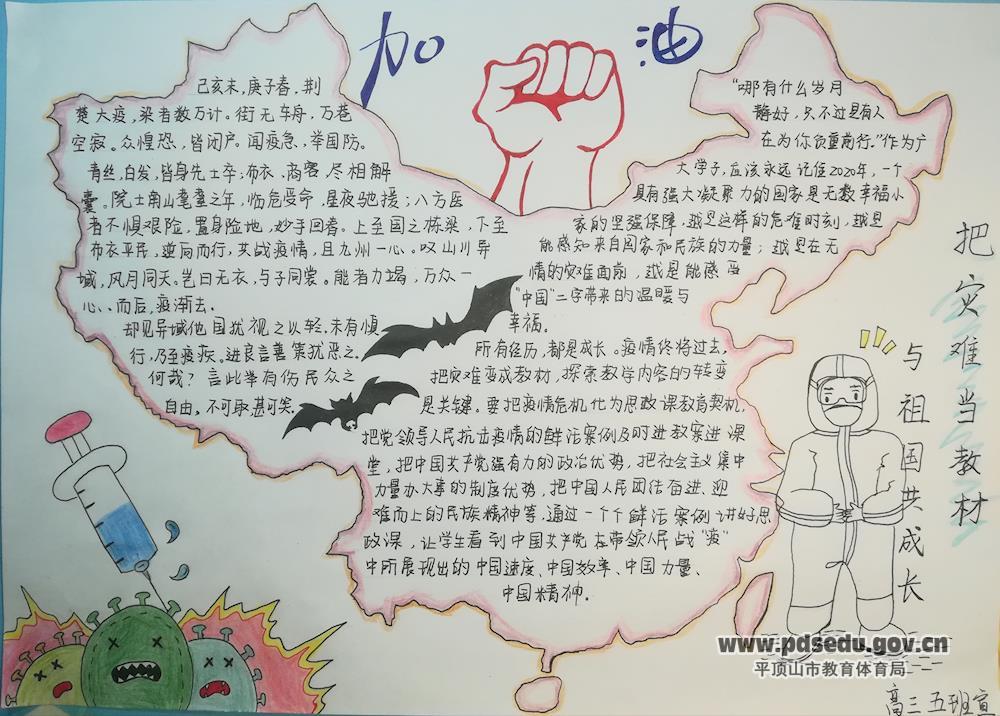 加油
己亥末,庚子春,荆
楚大疫,染者数万计。街无车舟,万巷
空寂。众惶恐,皆闭户。闻疫急,举国防。
青丝,白发,皆身先士卒;布衣、商客,尽相解
囊。院士南山耄耋之年,临危受命,星夜驰援;八方医
者不惧艰险,置身险地,妙手回春。上至国之栋梁,下至
布衣平民,逆向而行,共战疫情,且九州一心。叹山川异
域,风月同天。岂曰无衣,与子同裳。能者力竭,万众一
心、而后,疫渐去。
却见异域他国犹视之以轻,未有慎
行,乃至疫疾。进良言善策犹恶之。
何哉?言此举有伤民众之
自由,不可取甚可笑。
“哪有什么岁月
静好,只不过是有人
在为你负重前行。”作为广
大学子,应该永远记住2020年,一个
具有强大凝聚力的国家是无数幸福小
家的坚强保障,越是这样的危难时刻,越是
能感知来自国家和民族的力量;越是在无
情的灾难面前,越是能感受
“中国”二字带来的温暖与
幸福。
所有经历,都是成长。疫情终将过去,
把灾难变成教材,探索教学内容的转变
是关键。要把疫情危机化为思政课教育契机,
把党领导人民抗击疫情的鲜活案例及时进教案进课
堂,把中国共产党强有力的政治优势,把社会主义集中
力量办大事的制度优势,把中国人民团结奋进、迎
难而上的民族精神等,通过一个个鲜活案例讲好思
政课,让学生看到中国共产党在带领人民战“疫”
中所展现出的中国速度、中国效率、中国力量、
中国精神。
把灾难当教材
与祖国共成长
www.pdsedu.gov.cn
平顶山市教育体育局
高三五班宣